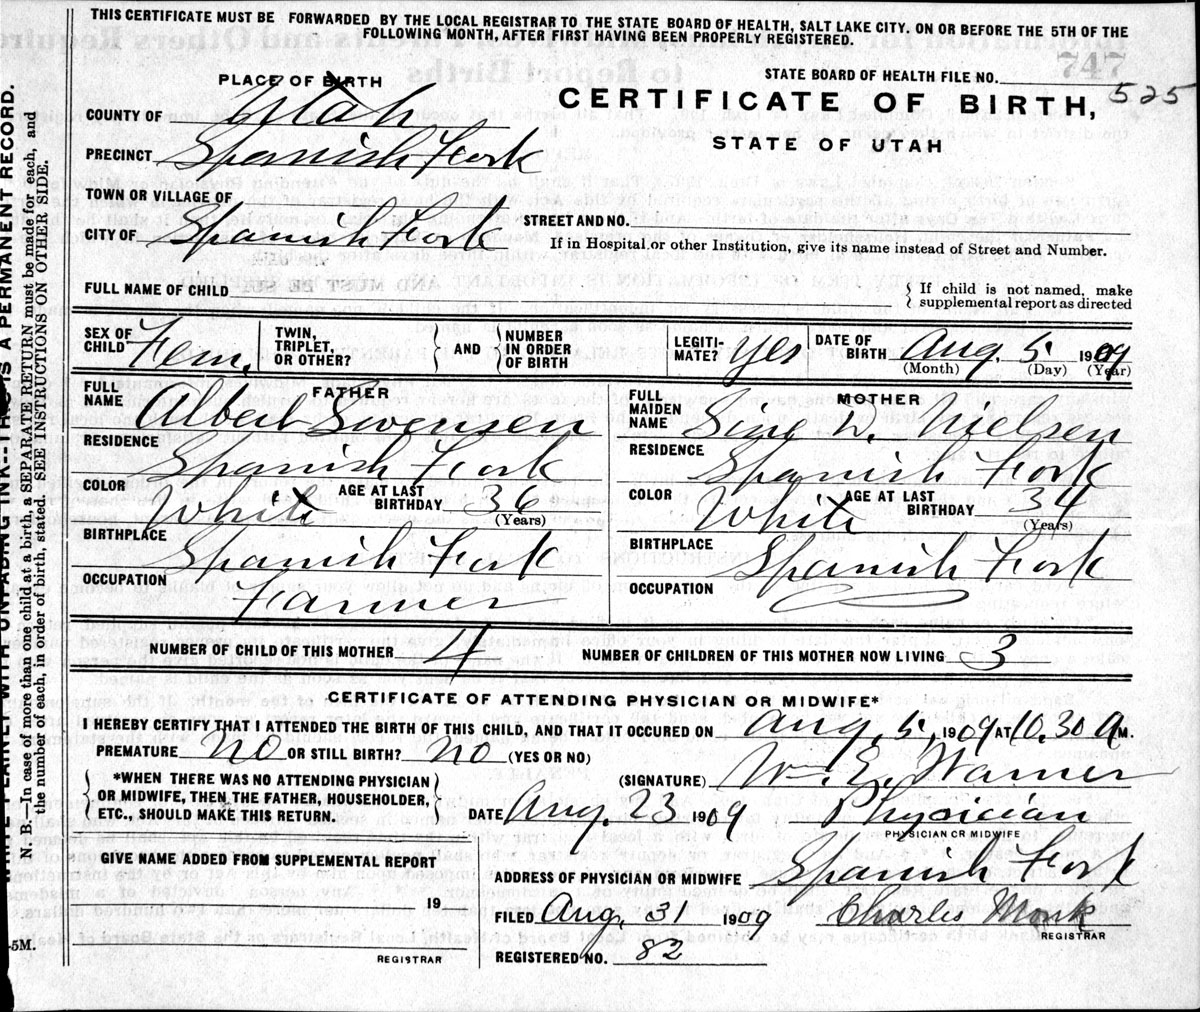 THIS CERTIFICATE MUST BE FORWARDED BY THE LOCAL REGISTRAR TO THE STATE BOARD OF HEALTH, SALT LAKE CITY, ON OR BEFORE THE 5TH OF THE
FOLLOWING MONTH, AFTER FIRST HAVING BEEN PROPERLY REGISTERED.
747
PLACE OF BIRTH
STATE BOARD OF HEALTH FILE NO.
525
CERTIFICATE OF BIRTH,
STATE OF UTAH
COUNTY OF Utah
PRECINCT Spanish Fork
TOWN OR VILLAGE OF
CITY OF Spanish Fork
STREET AND NO.
If in Hospital or other Institution, give its name instead of Street and Number.
FULL NAME OF CHILD
{ If child is not named, make
supplemental report as directed
SEX OF CHILD Fem.
TWIN, TRIPLET, OR OTHER?
{ AND } NUMBER IN ORDER OF BIRTH
LEGITI-MATE? yes
DATE OF BIRTH Aug. 5. 1909
(Month) (Day) (Year)
FATHER
FULL NAME Albert Swensen
RESIDENCE
Spanish Fork
COLOR White AGE AT LAST BIRTHDAY 36
(Years)
BIRTHPLACE Spanish Fork
OCCUPATION
Farmer
MOTHER
FULL MAIDEN NAME Sine N. Nielsen
RESIDENCE Spanish Fork
COLOR White AGE AT LAST BIRTHDAY 34
(Years)
BIRTHPLACE Spanish Fork
OCCUPATION
NUMBER OF CHILD OF THIS MOTHER 4 NUMBER OF CHILDREN OF THIS MOTHER NOW LIVING 3
CERTIFICATE OF ATTENDING PHYSICIAN OR MIDWIFE*
I HEREBY CERTIFY THAT I ATTENDED THE BIRTH OF THIS CHILD, AND THAT IT OCCURED ON Aug. 5, 1909 AT 10.30 A M.
PREMATURE No OR STILL BIRTH? No (YES OR NO)
{ *WHEN THERE WAS NO ATTENDING PHYSICIAN
OR MIDWIFE, THEN THE FATHER, HOUSEHOLDER,
ETC., SHOULD MAKE THIS RETURN. }
(SIGNATURE) W. E. Warner
DATE Aug. 23 1909 Physician
PHYSICIAN OR MIDWIFE
GIVE NAME ADDED FROM SUPPLEMENTAL REPORT
19
REGISTRAR
ADDRESS OF PHYSICIAN OR MIDWIFE Spanish Fork
FILED Aug. 31 1909 Charles Monk
REGISTRAR
REGISTERED NO. 82
THIS IS A PERMANENT RECORD.
N. B.—In case of more than one child at a birth, a SEPARATE RETURN must be made for each, and
the number of each, in order of birth, stated. SEE INSTRUCTIONS ON OTHER SIDE.
-5M.